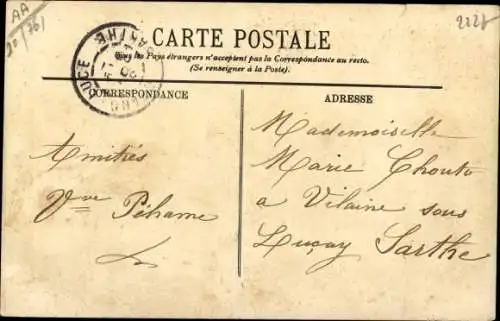 AA
CARTE POSTALE
Tous les Pays étrangers n'acceptent pas la Correspondance au recto.
(Se renseigner à la Poste).
SARTHE
CORRESPONDANCE
ADRESSE
Amitiés
Vve Péhame
Mademoiselle
Marie Chouta
a Vilaine sous
Luçay Sarthe